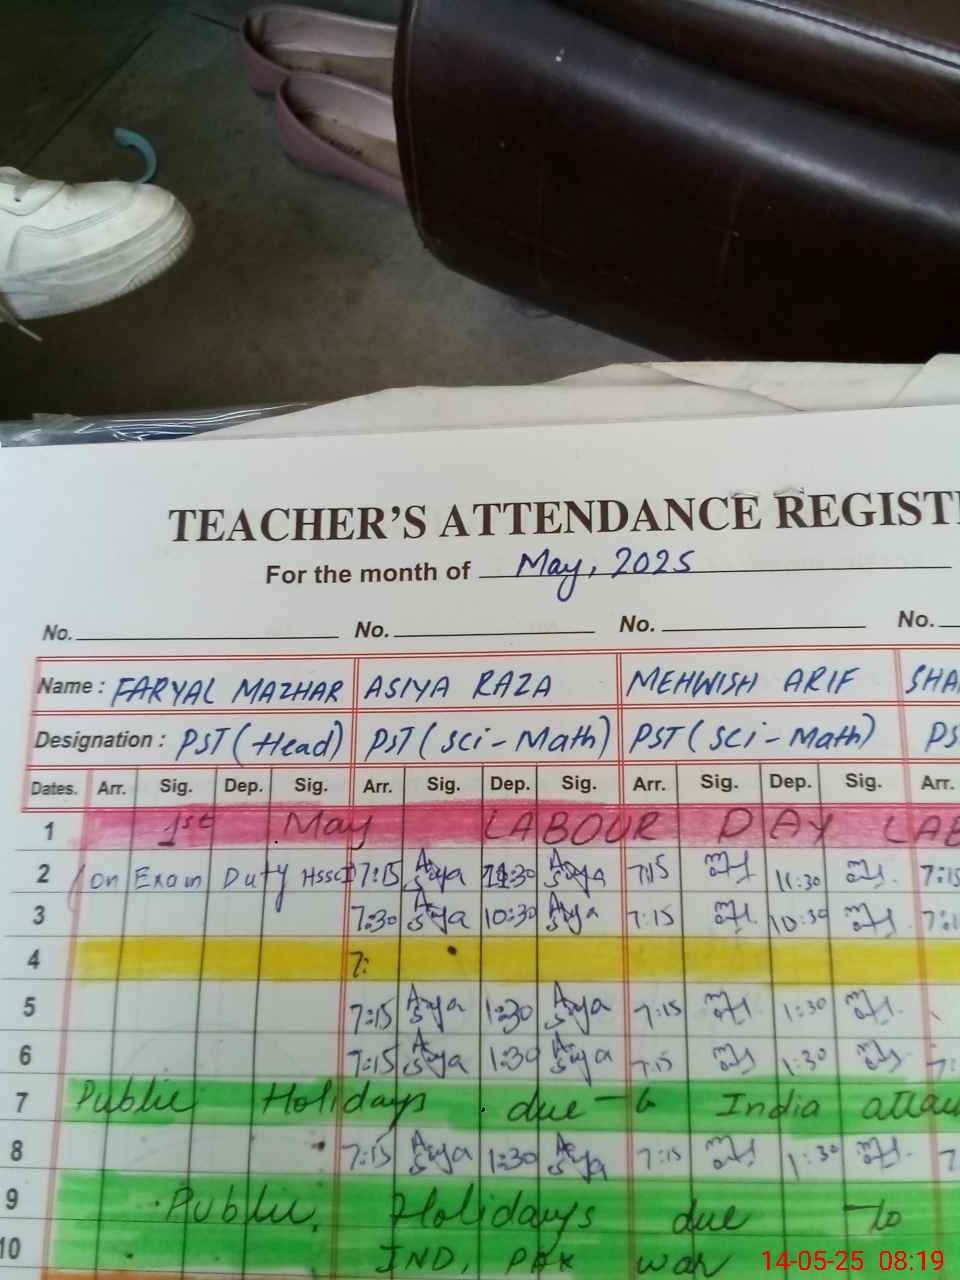 TEACHER'S ATTENDANCE REGIST
For the month of May, 2025
No. No. No. No.
Name : FARYAL MAZHAR ASIYA RAZA MEHWISH ARIF SHA
Designation : PST (Head) PST (Sci-Math) PST (Sci-Math) PS
Dates. Arr. Sig. Dep. Sig. Arr. Sig. Dep. Sig. Arr. Sig. Dep. Sig. Arr.
1 1st May LABOUR DAY LAB
2 On Exam Duty HSSC 7:15 Asya 11:30 Asya 7:15 11:30 7:15
3 7:30 Asya 10:30 Asya 7:15 10:30 7:1
4 7:
5 7:15 Asya 1:30 Asya 7:15 1:30
6 7:15 Asya 1:30 Asya 7:15 1:30 7:
7 Public Holidays due to India attac
8 7:15 Asya 1:30 Asya 7:15 1:30 7
9 Public Holidays due to
10 IND, PAK war
14-05-25 08:19